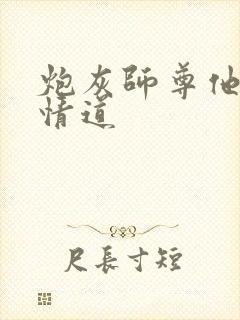 炮灰師尊他
情道
尺長寸短